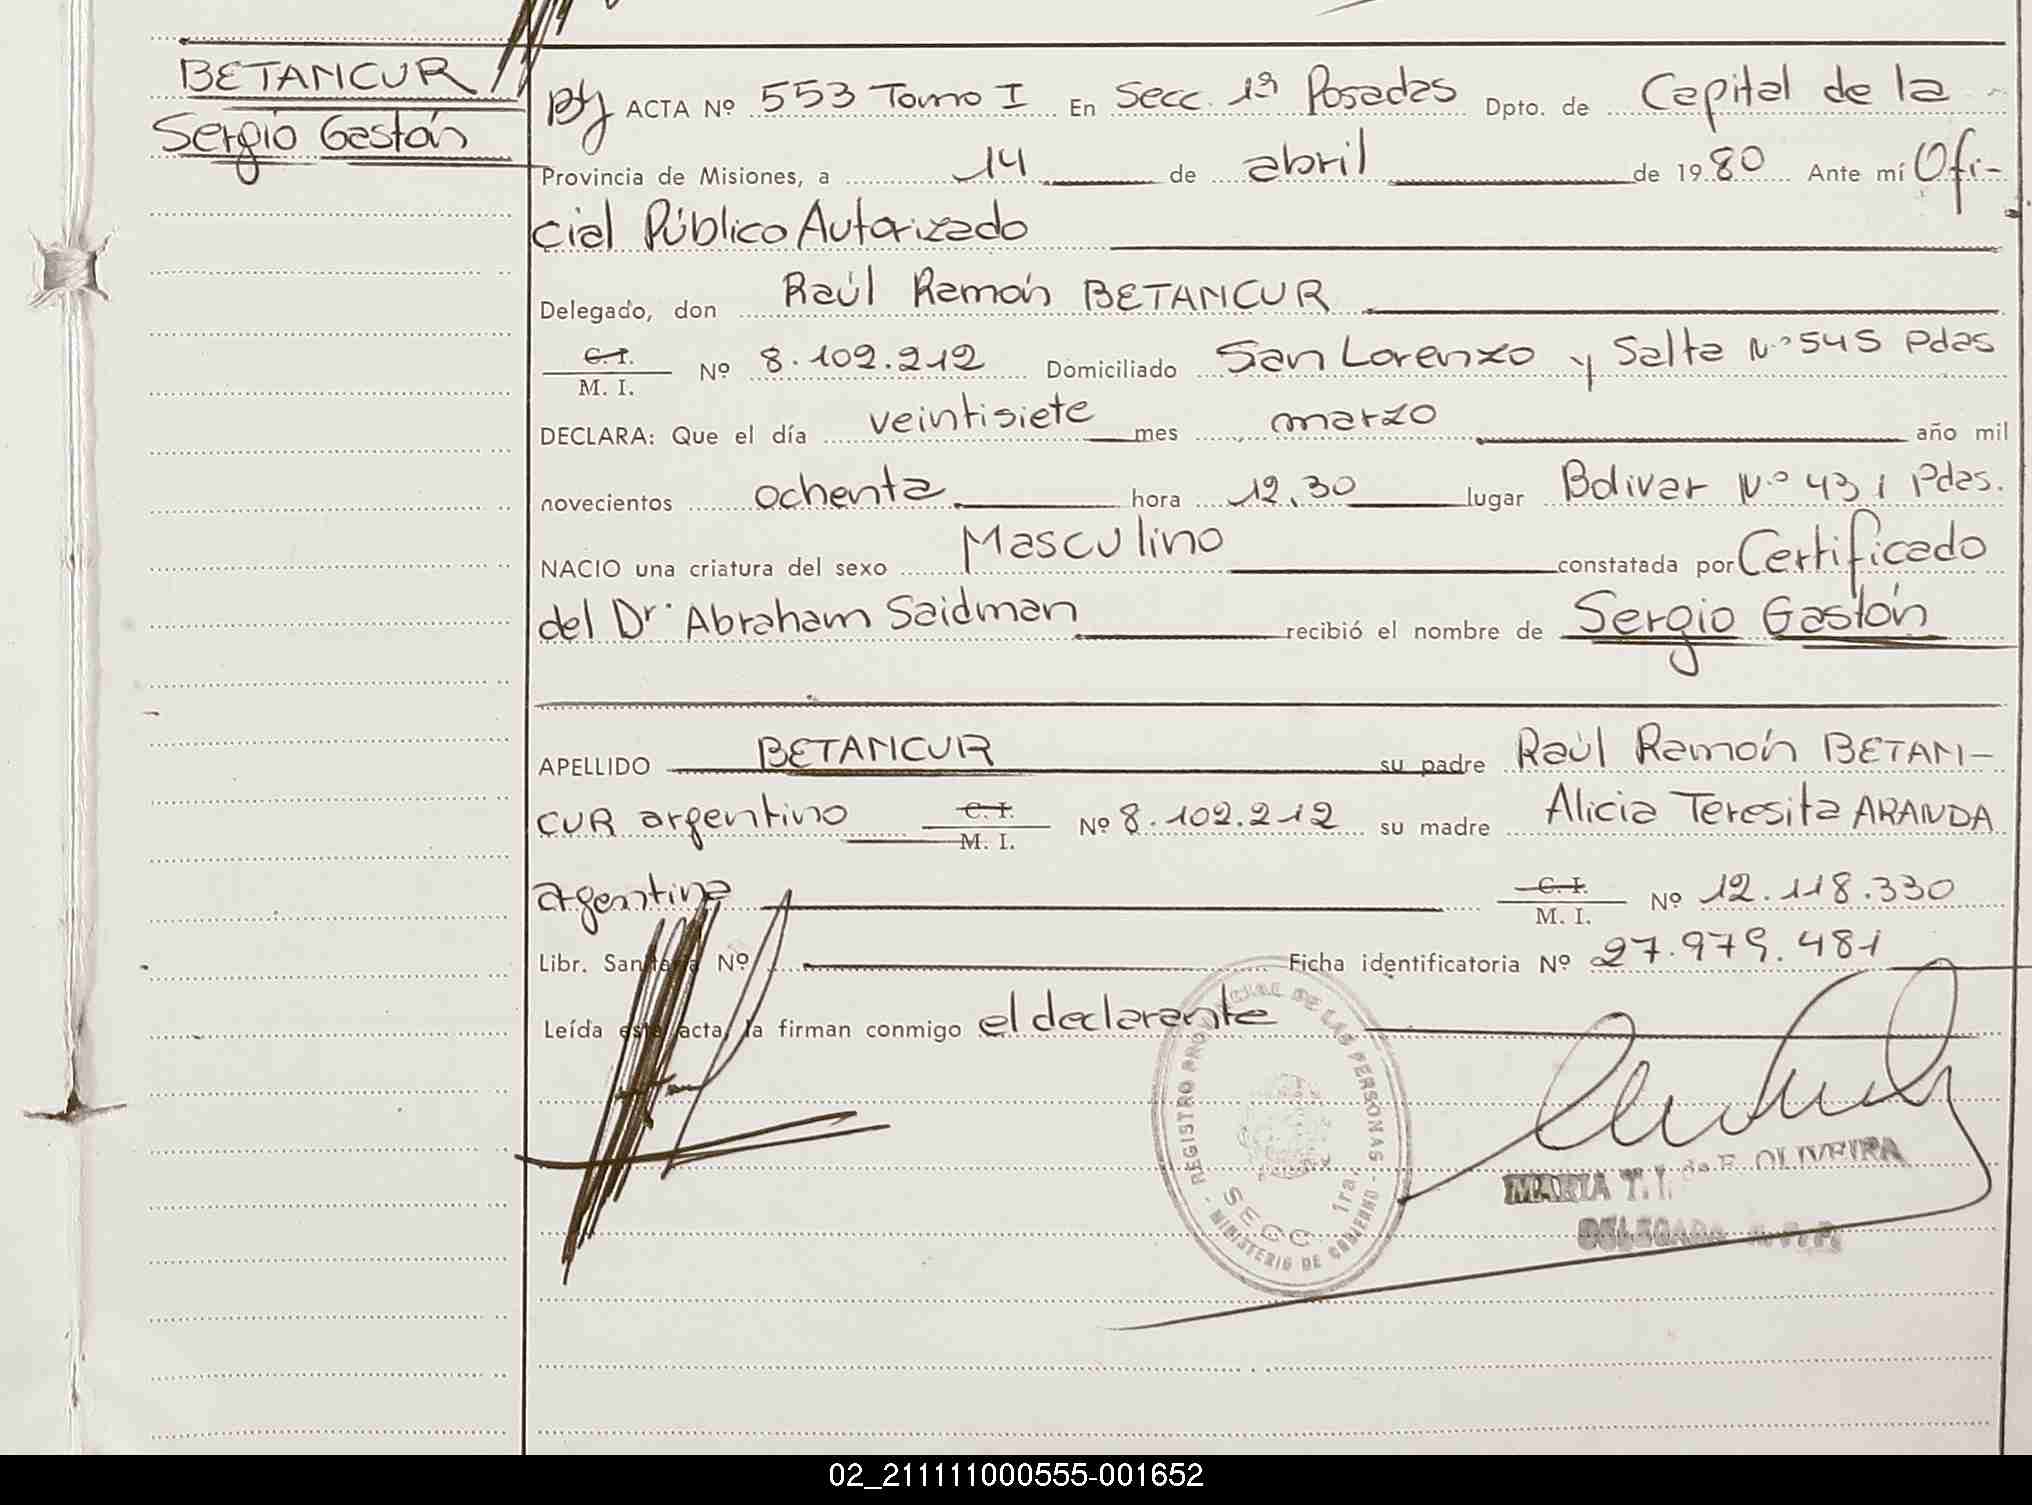 BETANCUR
Sergio Gastón
ACTA Nº 553 Tomo I En Secc. 1ª Posadas Dpto. de Capital de la
Provincia de Misiones, a 14 de abril de 1980 Ante mí Ofi-
cial Público Autorizado
Delegado, don Raúl Ramón BETANCUR
C. I.
M. I. Nº 8.102.212 Domiciliado San Lorenzo y Salta Nº 545 Pdas
DECLARA: Que el día veintisiete mes marzo año mil
novecientos ochenta hora 12,30 lugar Bolivar Nº 431 Pdas.
NACIO una criatura del sexo Masculino constatada por Certificado
del Dr. Abraham Saidman recibió el nombre de Sergio Gastón
APELLIDO BETANCUR su padre Raúl Ramón BETAN-
CUR argentino C. I.
M. I. Nº 8.102.212 su madre Alicia Teresita ARANDA
argentina C. I.
M. I. Nº 12.118.330
Libr. Sanitaria Nº Ficha identificatoria Nº 27.979.481
Leída esta acta, la firman conmigo el declarante
REGISTRO PROVINCIAL DE LAS PERSONAS
SECC. 1ra.
MINISTERIO DE GOBIERNO
MARIA T. I. de F. OLIVEIRA
DELEGADA
02_211111000555-001652